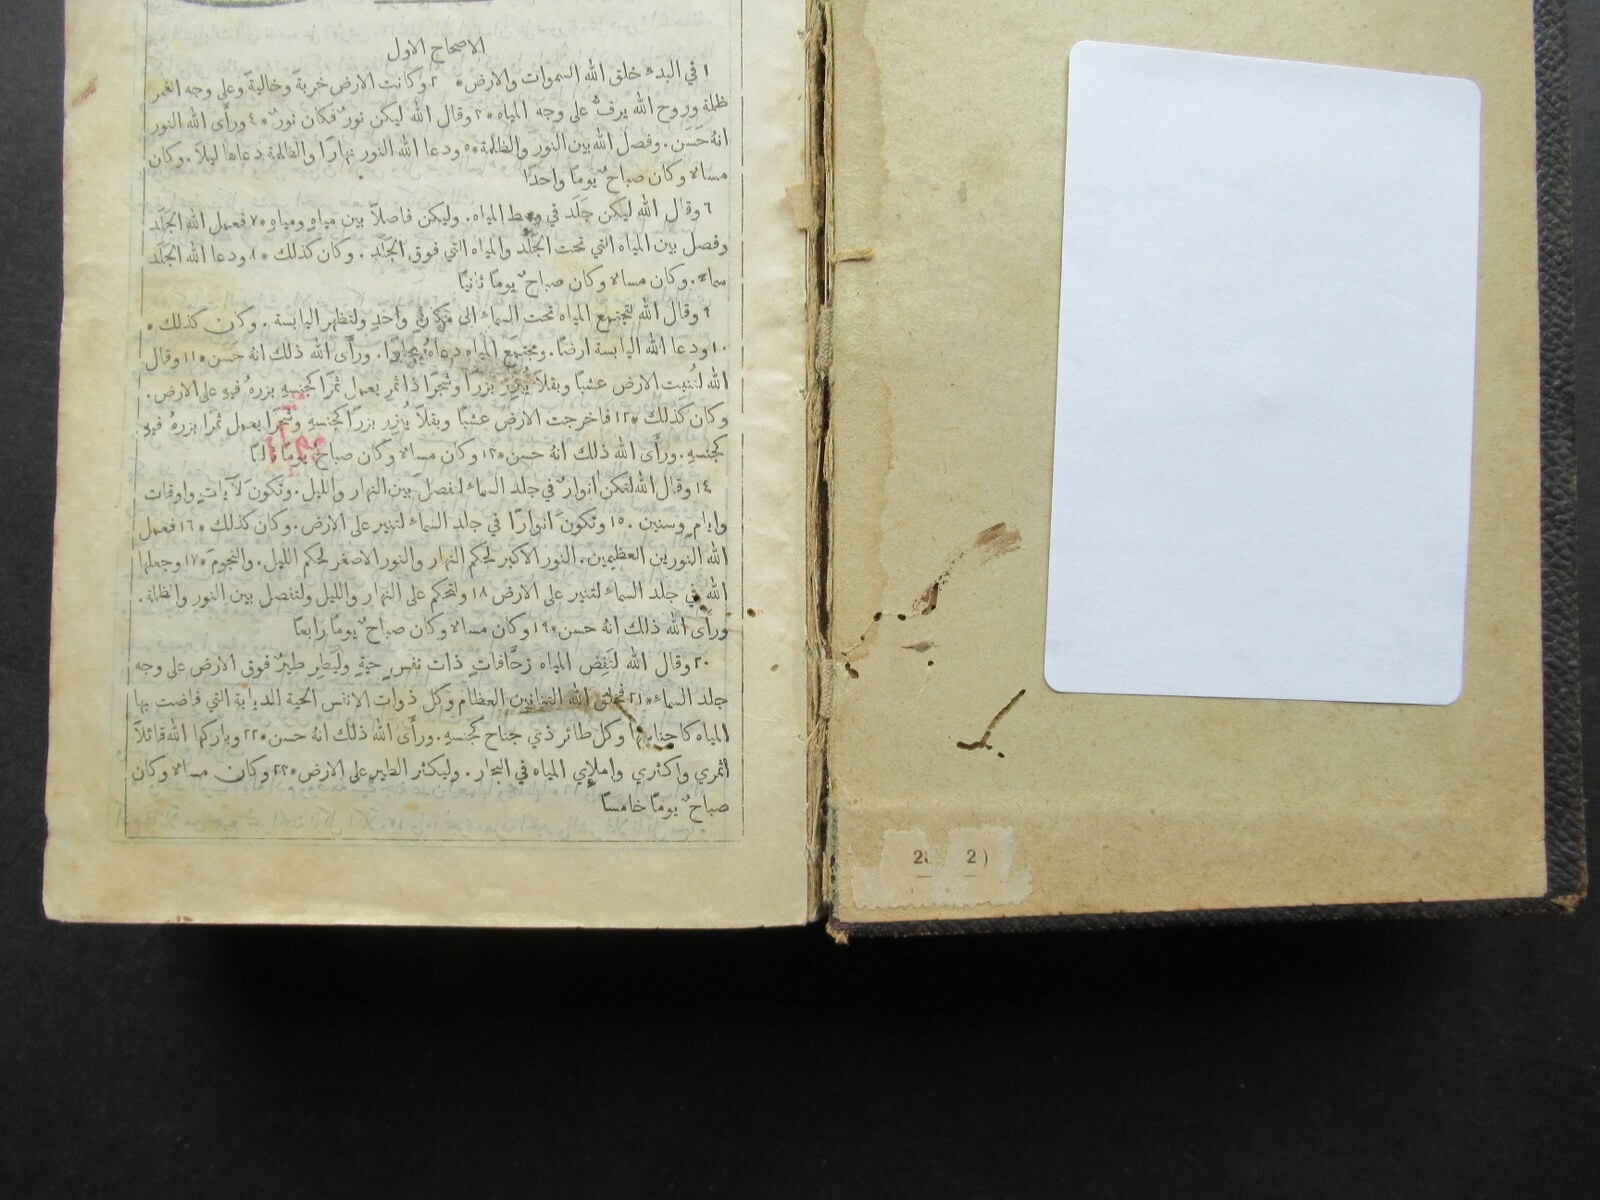 الاصحاح الاول
١ في البدء خلق الله السموات والارض * ٢ وكانت الارض خربةً وخاليةً وعلى وجه الغمر
ظلمة وروح الله يرفُّ على وجه المياه * ٣ وقال الله ليكن نورٌ فكان نورٌ * ٤ ورأَى الله النور
انهُ حَسَن . وفصل الله بين النور والظلمة * ٥ ودعا الله النور نهارًا والظلمة دعاها ليلًا . وكان
مساءٌ وكان صباحٌ يومًا واحدًا
٦ وقال الله ليكن جَلَد في وسط المياه . وليكن فاصلًا بين مياهٍ ومياهٍ * ٧ فعمل الله الجَلَد
وفصل بين المياه التي تحت الجَلَد والمياه التي فوق الجَلَد . وكان كذلك * ٨ ودعا الله الجَلَد
سماءً . وكان مساءٌ وكان صباحٌ يومًا ثانيًا
٩ وقال الله لتجتمع المياه تحت السماءِ الى مكانٍ واحدٍ ولتظهر اليابسة . وكان كذلك *
١٠ ودعا الله اليابسة ارضًا . ومجتمَع المياه دعاهُ بحارًا . ورأَى الله ذلك انهُ حَسَن * ١١ وقال
الله لتُنبِت الارض عشبًا وبقلًا يُبزِر بزرًا وشجرًا ذا ثمرٍ يعمل ثمرًا كجنسهِ بزرهُ فيهِ على الارض .
وكان كذلك * ١٢ فاخرجت الارض عشبًا وبقلًا يُبزِر بزرًا كجنسهِ وشجرًا يعمل ثمرًا بزرهُ فيهِ
كجنسهِ . ورأَى الله ذلك انهُ حسن * ١٣ وكان مساءٌ وكان صباحٌ يومًا ثالثًا
١٤ وقال الله لتكن انوارٌ في جلد السماءِ لتفصل بين النهار والليل . وتكونَ لآياتٍ واوقات
وايامٍ وسنين . ١٥ وتكونَ انوارًا في جلد السماءِ لتنير على الارض . وكان كذلك * ١٦ فعمل
الله النورين العظيمين . النور الاكبر لحكم النهار والنور الاصغر لحكم الليل . والنجومَ * ١٧ وجعلها
الله في جلد السماءِ لتنير على الارض ١٨ ولتحكم على النهار والليل ولتفصل بين النور والظلمة .
ورأَى الله ذلك انهُ حسن * ١٩ وكان مساءٌ وكان صباحٌ يومًا رابعًا
٢٠ وقال الله لتَفِض المياه زحَّافاتٍ ذات نفسٍ حيةٍ وليَطِر طيرٌ فوق الارض على وجه
جلد السماءِ * ٢١ فخلق الله التنانين العظام وكل ذوات الانفس الحية الدبابة التي فاضت بها
المياه كاجناسها وكل طائر ذي جناح كجنسهِ . ورأَى الله ذلك انهُ حسن * ٢٢ وباركها الله قائلًا
أثمري واكثري واملإي المياه في البحار . وليكثر الطير على الارض * ٢٣ وكان مساءٌ وكان
صباحٌ يومًا خامسًا